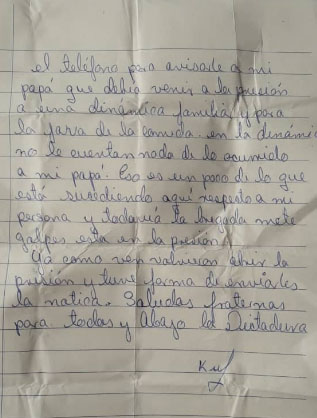 el teléfono para avisarle a mi
papá que debia venir a la prision
a una dinámica familiar y para
la java de la comida. en la dinámi
no le cuentan nada de lo ocurrido
a mi papá. Eso es un poco de lo que
está sucediendo aquí respecto a mi
persona y todavia la brigada mete
golpes esta en la prision.
Ya como ven volvieron abrir la
prision y tuve forma de enviarles
la notica. Saludos fraternos
para todos y Abajo la Dictadura